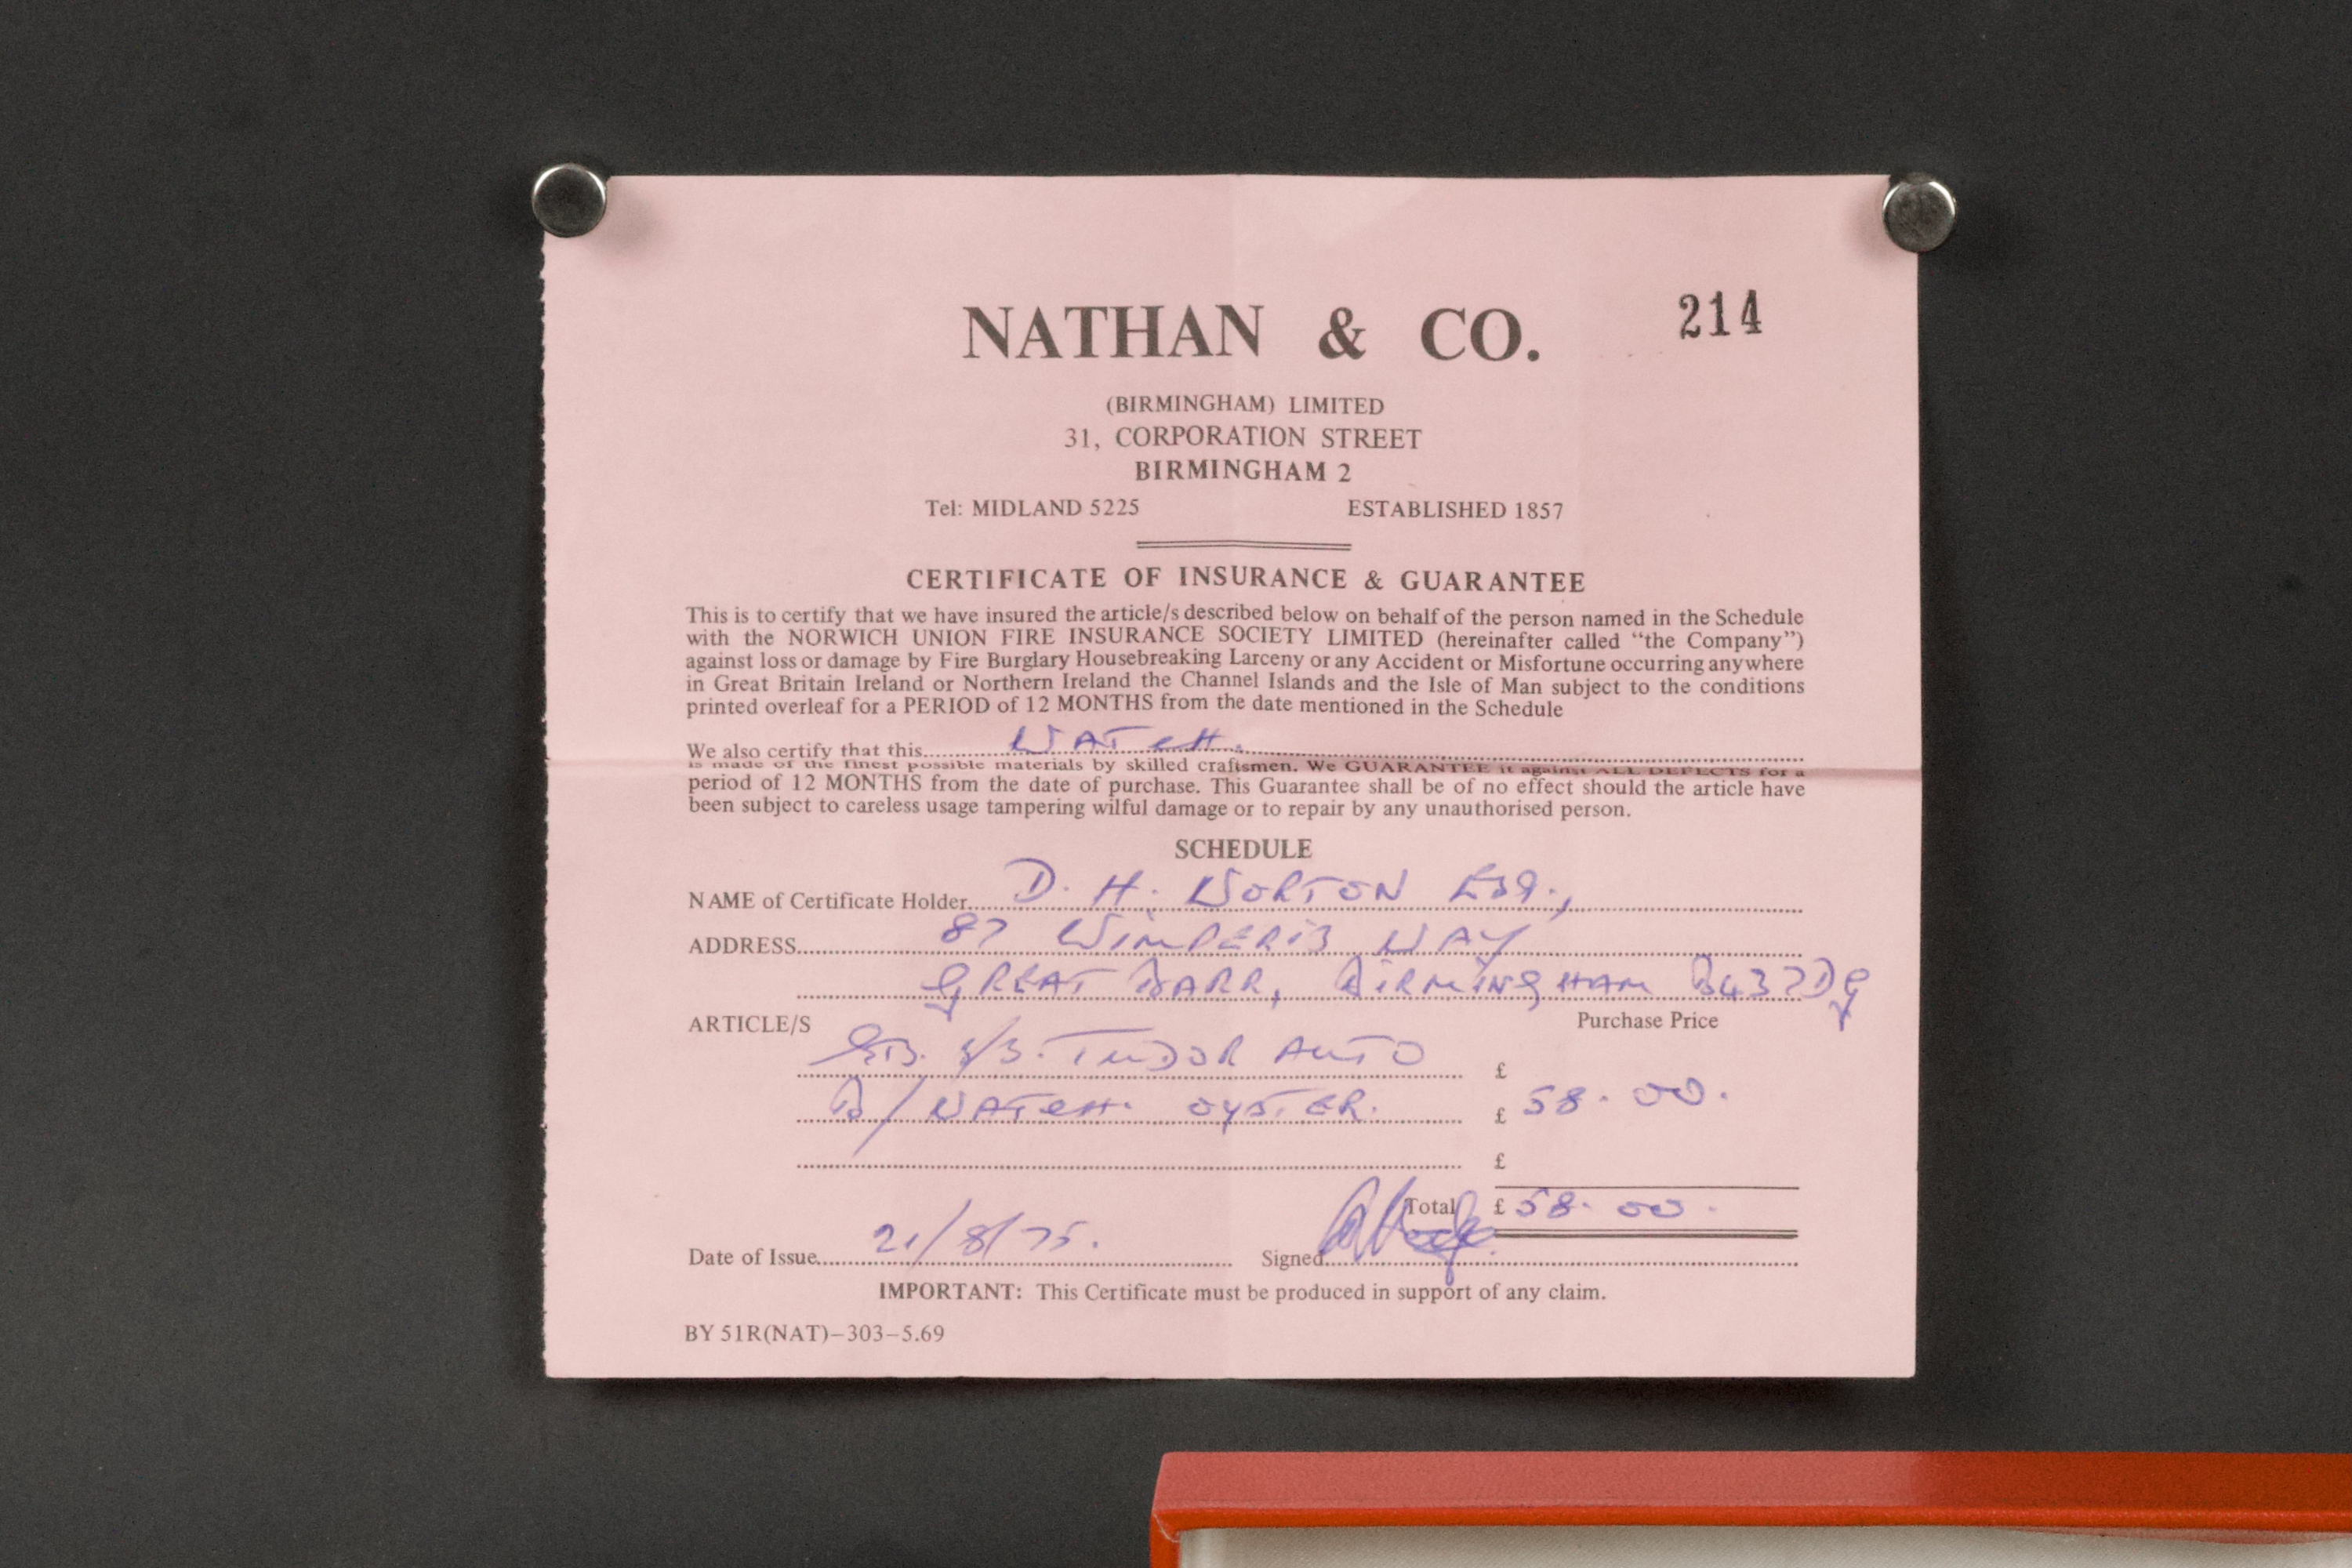 NATHAN & CO.
214
(BIRMINGHAM) LIMITED
31, CORPORATION STREET
BIRMINGHAM 2
Tel: MIDLAND 5225 ESTABLISHED 1857
CERTIFICATE OF INSURANCE & GUARANTEE
This is to certify that we have insured the article/s described below on behalf of the person named in the Schedule
with the NORWICH UNION FIRE INSURANCE SOCIETY LIMITED (hereinafter called “the Company”)
against loss or damage by Fire Burglary Housebreaking Larceny or any Accident or Misfortune occurring anywhere
in Great Britain Ireland or Northern Ireland the Channel Islands and the Isle of Man subject to the conditions
printed overleaf for a PERIOD of 12 MONTHS from the date mentioned in the Schedule
We also certify that this WATCH.
is made of the finest possible materials by skilled craftsmen. We GUARANTEE it against ALL DEFECTS for a
period of 12 MONTHS from the date of purchase. This Guarantee shall be of no effect should the article have
been subject to careless usage tampering wilful damage or to repair by any unauthorised person.
SCHEDULE
NAME of Certificate Holder D. H. NORTON ESQ.,
ADDRESS 87 WIMPERIS WAY
GREAT BARR, BIRMINGHAM B43 7DG
ARTICLE/S Purchase Price
S/S. TUDOR AUTO £
B/WATCH. OYSTER. £ 58.00.
£
Total £ 58.00.
Date of Issue 21/8/75. Signed
IMPORTANT: This Certificate must be produced in support of any claim.
BY 51R(NAT)–303–5.69